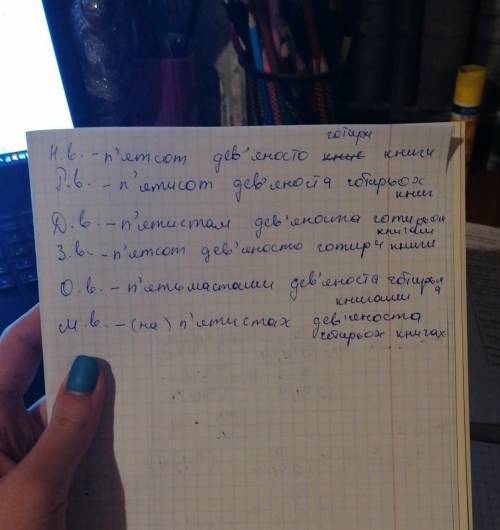 чотири
Н.в. - п'ятсот дев'яносто книги
Р.в. - п'ятисот дев'яноста чотирьох
книг
Д.в. - п'ятистам дев'яноста чотирьом
книгам
З.в. - п'ятсот дев'яносто чотири книги
О.в. - п'ятьмастами дев'яноста чотирма
книгами
М.в. - (на) п'ятистах дев'яноста
чотирьох книгах